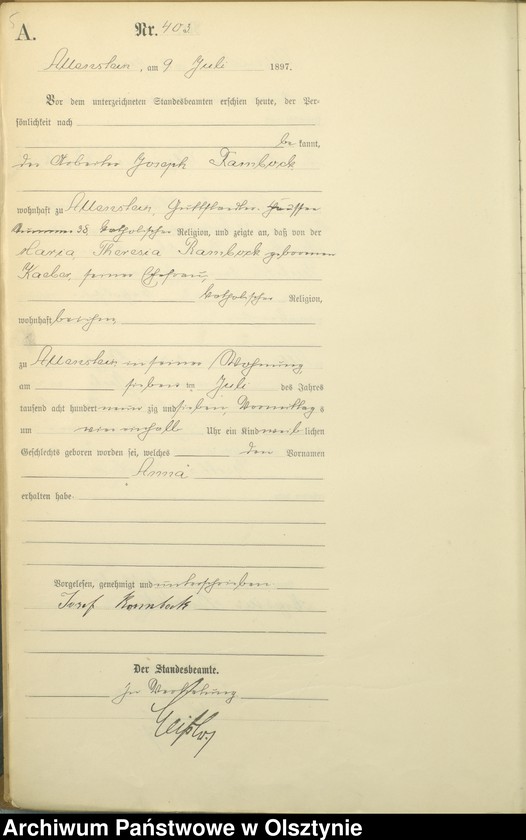 A.
Nr. 403
Allenstein, am 9 Juli 1897.
Vor dem unterzeichneten Standesbeamten erschien heute, der Per-
sönlichkeit nach
be kannt,
der Arbeiter Joseph Rambock
wohnhaft zu Allenstein,
38, katholischer Religion, und zeigte an, daß von der
Maria Theresia Rambock geborenen
seiner Ehefrau,
katholischer Religion,
wohnhaft bei ihm
zu Allenstein in seiner Wohnung
am sieben ten Juli des Jahres
tausend acht hundert neun zig und sieben Vormittag s
um Uhr ein Kind weib lichen
Geschlechts geboren worden sei, welches den Vornamen
Anna
erhalten habe
Vorgelesen, genehmigt und unterschrieben
Josef Rambock
Der Standesbeamte.
In Vertretung
Archiwum Państwowe w Olsztynie